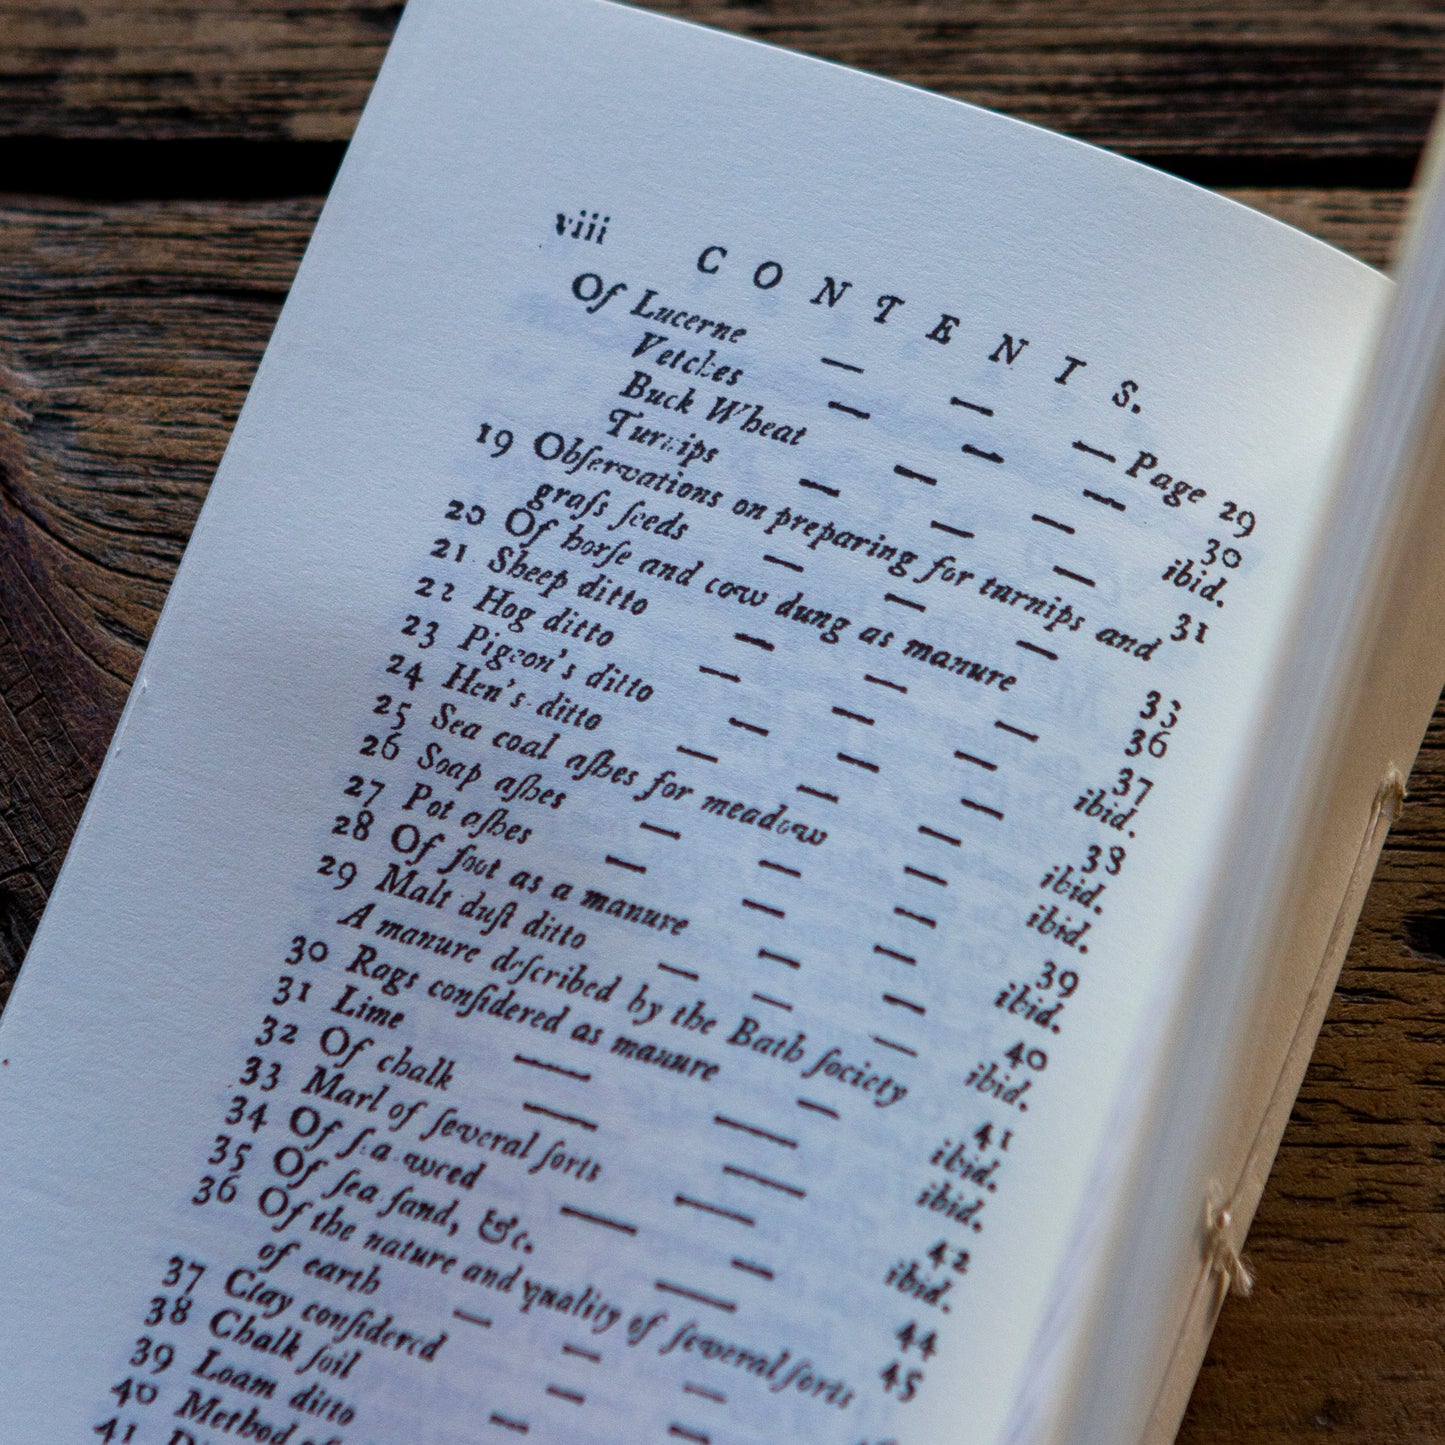 viii CONTENTS.
Of Lucerne — — — Page 29
Vetches — — — 30
Buck Wheat — — ibid.
Turnips — — — 31
19 Obſervations on preparing for turnips and
graſs ſeeds — — — 33
20 Of horſe and cow dung as manure — 36
21 Sheep ditto — — — 37
22 Hog ditto — — — ibid.
23 Pigeon's ditto — — — 38
24 Hen's ditto — — — ibid.
25 Sea coal aſhes for meadow — ibid.
26 Soap aſhes — — — 39
27 Pot aſhes — — — ibid.
28 Of ſoot as a manure — — 40
29 Malt duſt ditto — — — ibid.
A manure deſcribed by the Bath ſociety 41
30 Rags conſidered as manure — ibid.
31 Lime — — — ibid.
32 Of chalk — — — 42
33 Marl of ſeveral ſorts — — ibid.
34 Of ſea weed — — 44
35 Of ſea ſand, &c. — — 45
36 Of the nature and quality of ſeveral ſorts
of earth — — —
37 Clay conſidered — —
38 Chalk ſoil — —
39 Loam ditto —
40 Method
41